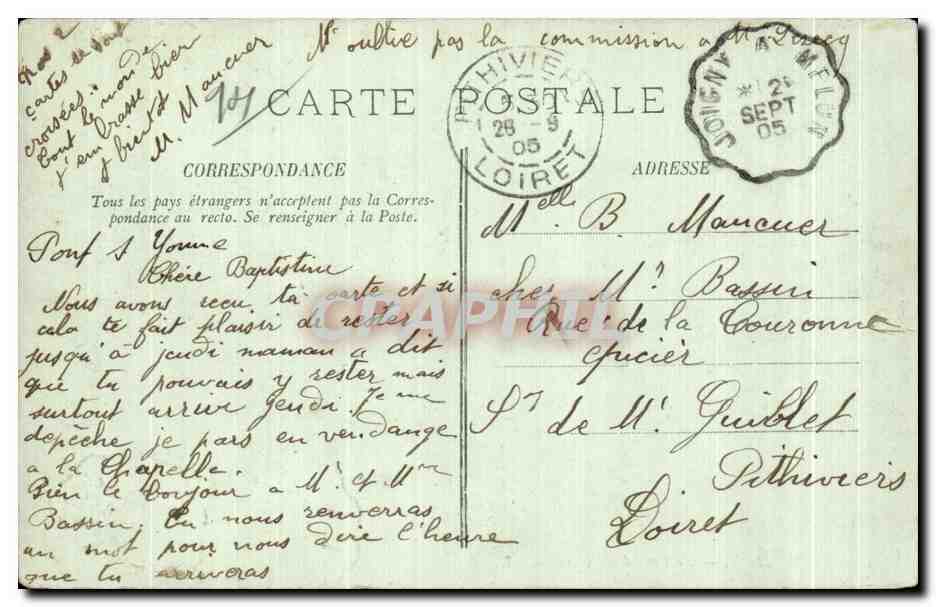 Nos 2
cartes se sont
croisées.
tout le monde
t'embrasse bien
à bientôt
M. Maucuer
N'oublie pas la commission a Mr
CARTE POSTALE
CORRESPONDANCE
Tous les pays étrangers n'acceptent pas la Corres-
pondance au recto. Se renseigner à la Poste.
Pont s Yonne
Chère Baptistine
Nous avons reçu ta carte et si
cela te fait plaisir de rester
jusqu'à jeudi maman a dit
que tu pouvais y rester mais
surtout arrive Jeudi. Je me
depêche je pars en vendange
a la Chapelle.
Bien le bonjour a Mr et Mme
Bassin. Tu nous renverras
un mot pour nous dire l'heure
que tu arriveras
PITHIVIERS
26 - 9
05
LOIRET
JOIGNY A MELUN
SEPT
05
ADRESSE
Melle B. Maucuer
chez Mr Bassin
Rue de la Couronne
épicier
Sr de Mr Guiblet
Pithiviers
Loiret
CPAPHIL